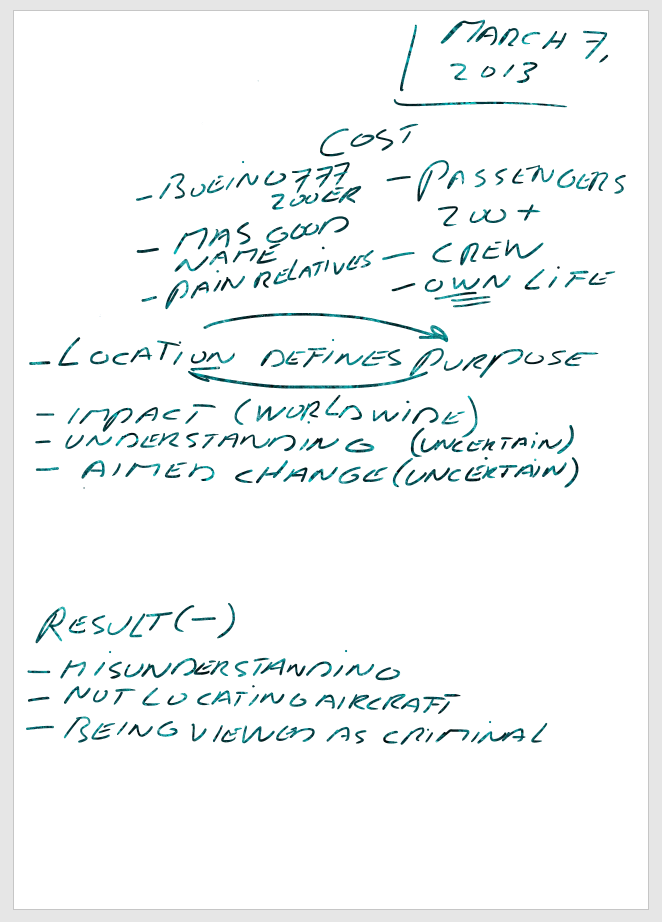 MARCH 7,
2013
COST
- BOEING 777
200ER
- PASSENGERS
200+
- MAS GOOD
NAME
- CREW
- PAIN RELATIVES
- OWN LIFE
- LOCATION DEFINES PURPOSE
- IMPACT (WORLDWIDE)
- UNDERSTANDING (UNCERTAIN)
- AIMED CHANGE (UNCERTAIN)
RESULT (-)
- MISUNDERSTANDING
- NOT LOCATING AIRCRAFT
- BEING VIEWED AS CRIMINAL